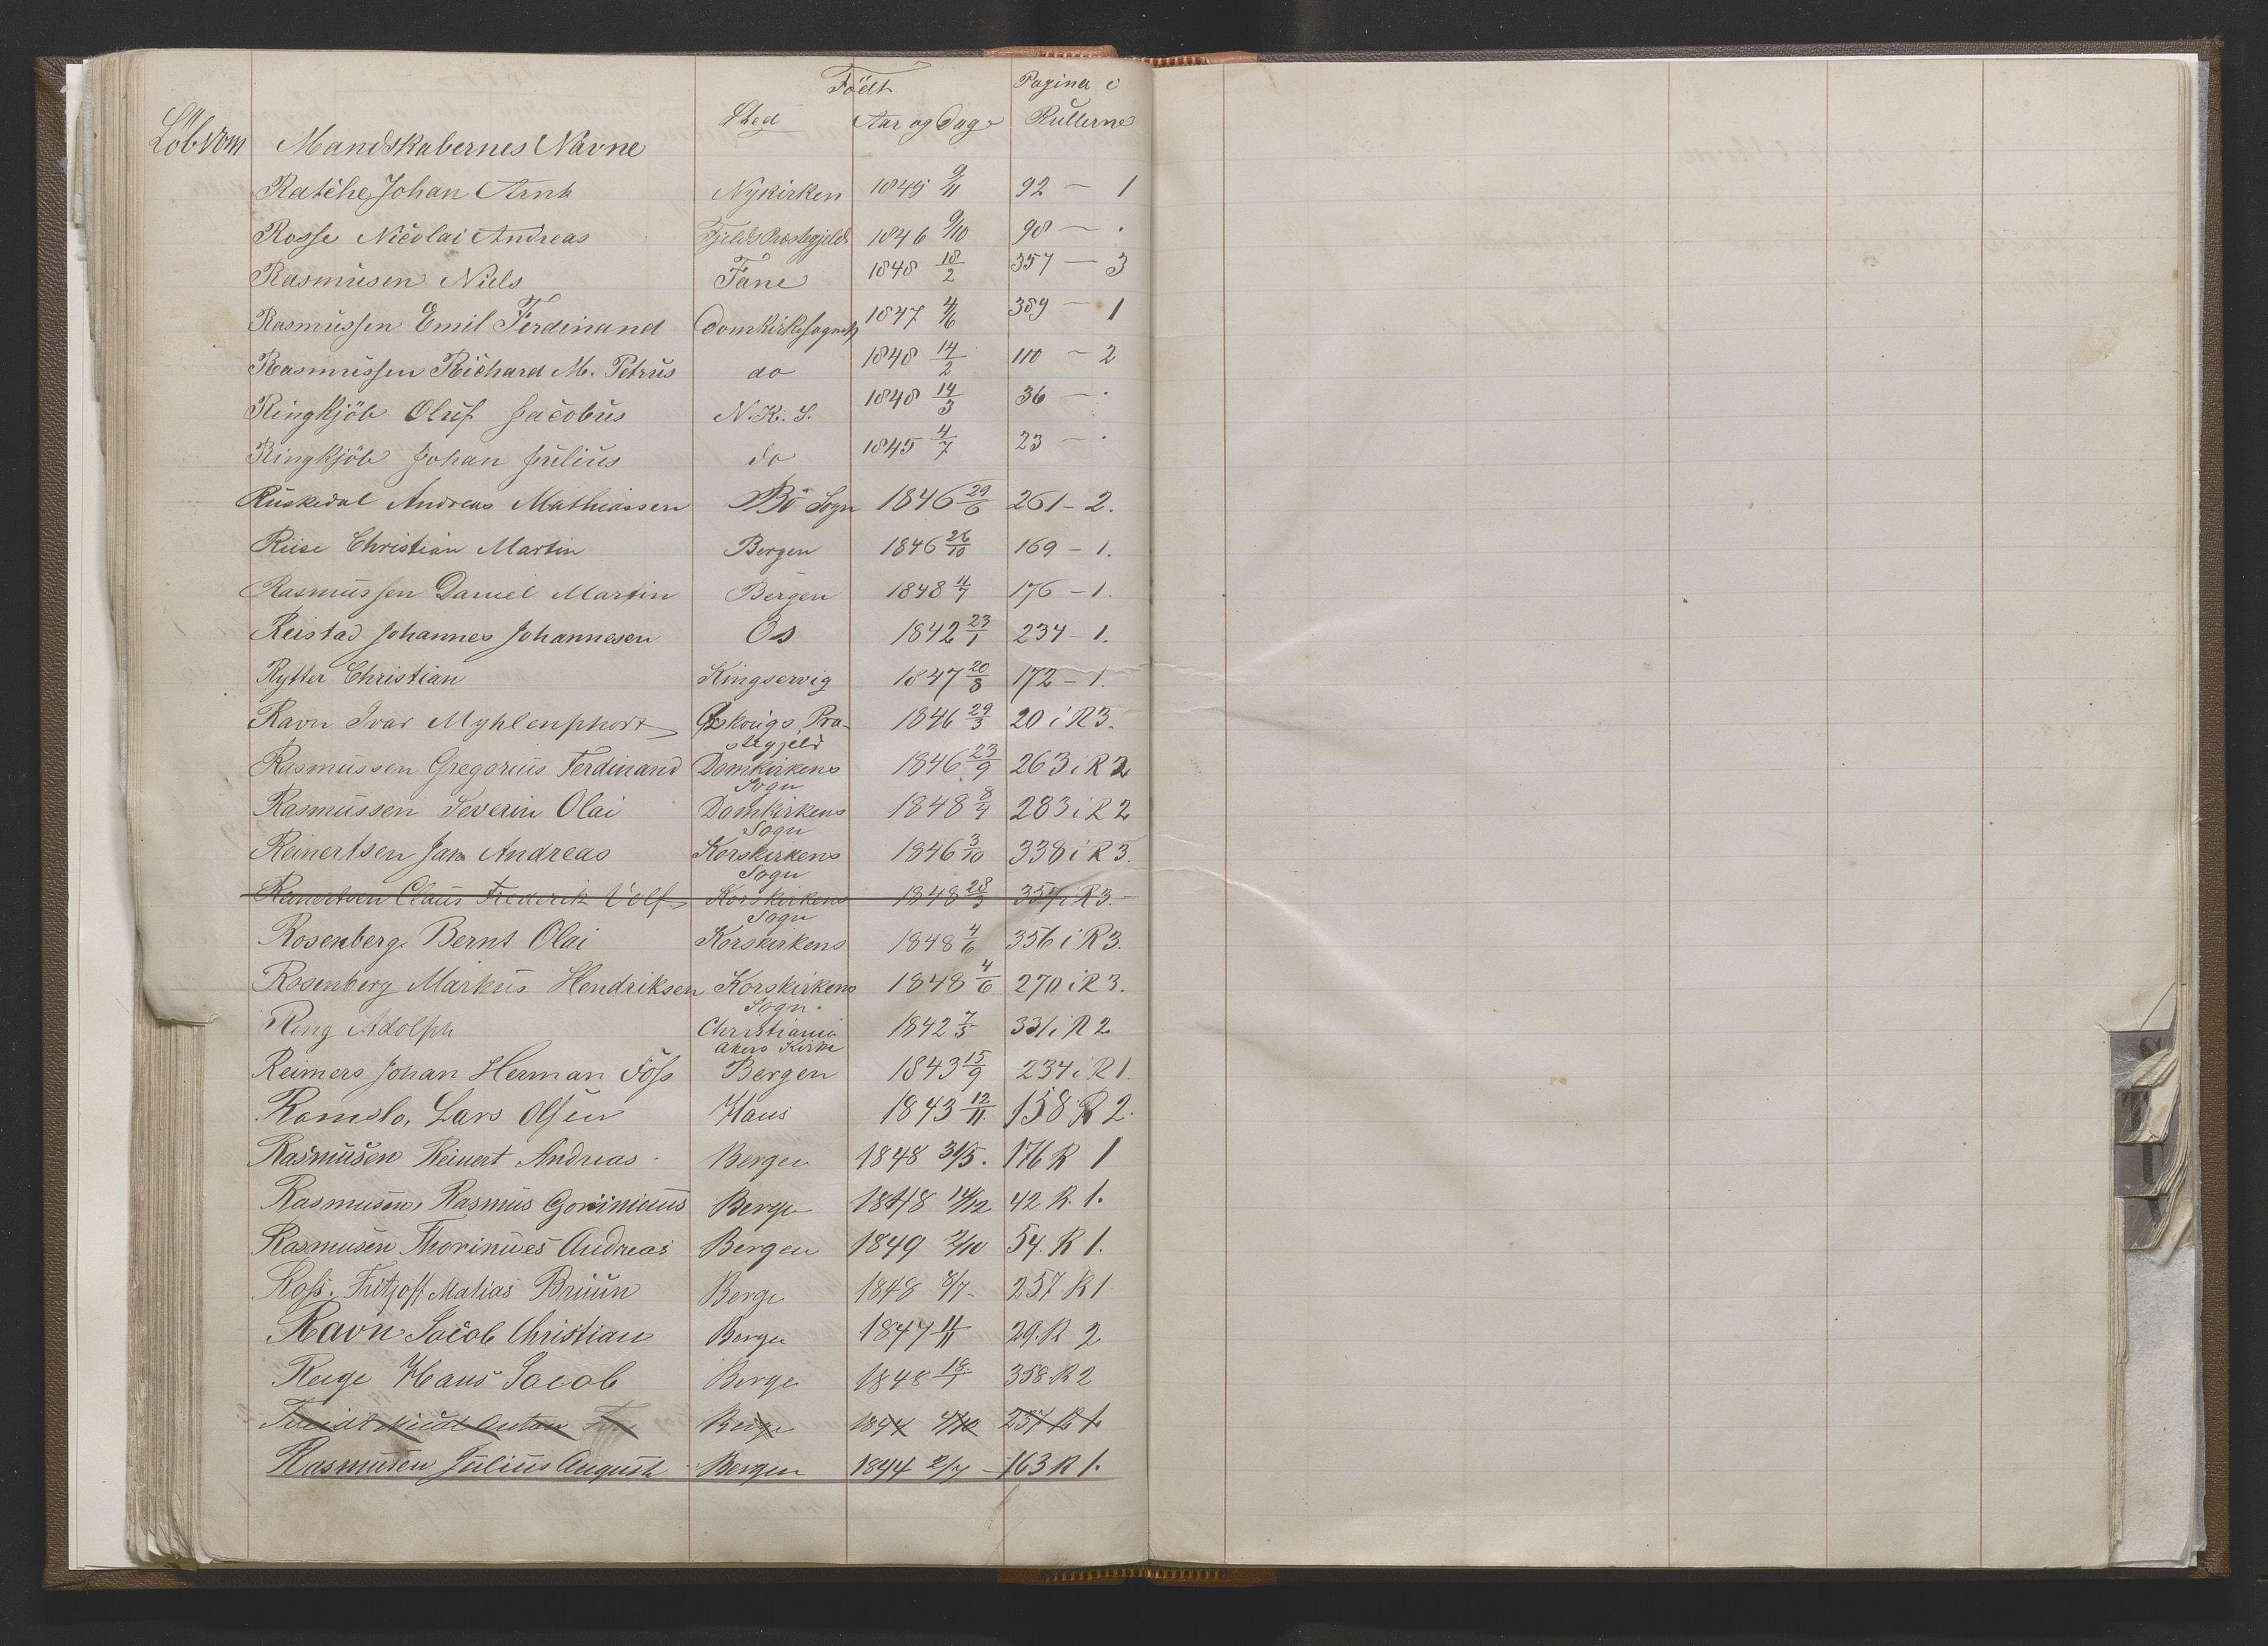 Födt Pagina i
Sted Aar og Dag Rullerne
Löb No Mandskabernes Navne
Ratche Johan Arnt Nykirken 1845 9/11 92 — 1
Rosse Nicolai Andreas Fjelds Præstegjeld 1846 9/10 98 — "
Rasmusen Niels Fane 1848 18/2 357 — 3
Rasmussen Emil Ferdinand Domkirkesognet 1847 4/6 389 — 1
Rasmussen Richard M. Petrus do 1848 14/2 110 — 2
Ringkjöb Oluf Jacobus N. K. S. 1848 14/3 36 — "
Ringkjöb Johan Julius do 1845 4/7 23 — "
Ruskedal Andreas Mathiassen Bö Sogn 1846 29/6 261 - 2.
Riise Christian Martin Bergen 1846 26/10 169 - 1.
Rasmussen Daniel Martin Bergen 1848 4/7 176 - 1.
Reistad Johannes Johannesen Os 1842 23/1 234 - 1.
Rytter Christian Kingservig 1847 20/8 172 - 1.
Ravn Ivar Myhlenphort Ørskougs Præ-
stegjeld 1846 29/3 20 i R 3.
Rasmussen Gregorius Ferdinand Domkirkens
Sogn 1846 23/9 263 i R 2
Rasmussen Severin Olai Domkirkens
Sogn 1848 8/4 283 i R 2
Reinertsen Jan Andreas Korskirkens
Sogn 1846 3/10 338 i R 3.
Reinertsen Claus Frederik Volf Korskirkens
Sogn 1848 28/3 357 i R 3.
Rosenberg Bernt Olai Korskirkens 1848 4/6 356 i R 3.
Rosenberg Markus Hendriksen Korskirkens
Sogn 1848 4/6 270 i R 3.
Ring Adolph Christiania
Akers Kirke 1842 7/5 331 i R 2
Reimers Johan Herman Foss Bergen 1843 15/9 234 i R 1
Romslo, Lars Olsen Haus 1843 12/11. 158 R 2.
Rasmusen Reinert Andreas Bergen 1848 31/5. 176 R 1
Rasmusen, Rasmus Bergen 1848 14/12 42 R. 1.
Rasmusen Andreas Bergen 1849 2/10 54. R 1.
Ross. Fritjoff Matias Bruun Berge 1848 8/7 257 R 1
Ravn Jacob Christian Bergen 1847 11/11 29. R 2
Reige Hans Jacob Berge 1848 18/7 358 R 2
Anton Berge 1844 4/12 237 R 1
Rasmusen Julius August Bergen 1844 2/7 163 R 1.